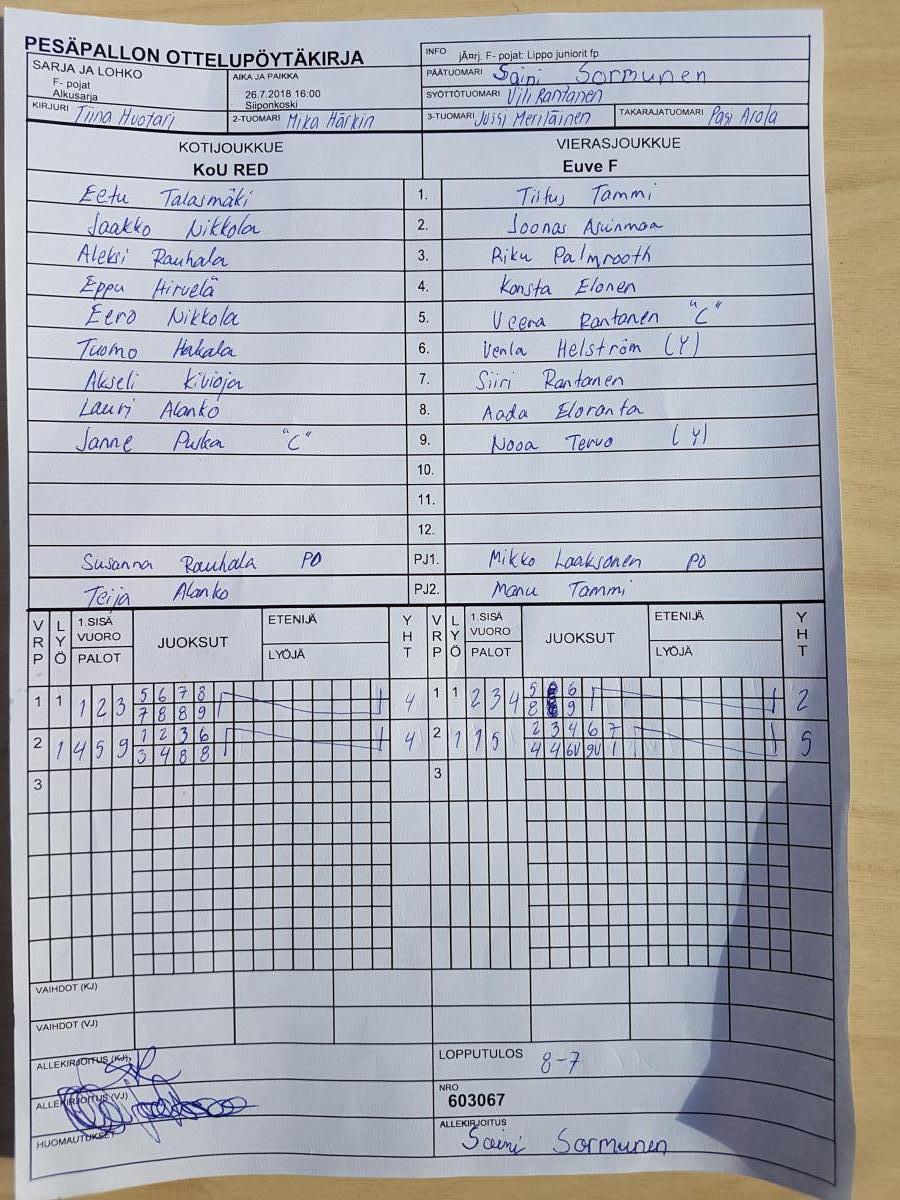 PESÄPALLON OTTELUPÖYTÄKIRJA
INFO jÃ¤rj. F- pojat: Lippo juniorit fp
SARJA JA LOHKO
F- pojat
Alkusarja
AIKA JA PAIKKA
26.7.2018 16:00
Siiponkoski
PÄÄTUOMARI Saini Sormunen
SYÖTTÖTUOMARI Vili Rantanen
KIRJURI Tiina Huotari
2-TUOMARI Mika Härkin
3-TUOMARI Jussi Meriläinen
TAKARAJATUOMARI Pasi Arola
KOTIJOUKKUE VIERASJOUKKUE
KoU RED Euve F
Eetu Talasmäki 1. Tiitus Tammi
Jaakko Nikkola 2. Joonas Asunmaa
Aleksi Rauhala 3. Riku Palmrooth
Eppu Hirvelä 4. Konsta Elonen
Eero Nikkola 5. Veera Rantanen "C"
Tuomo Hakala 6. Venla Helström (Y)
Akseli Kivioja 7. Siiri Rantanen
Lauri Alanko 8. Aada Eloranta
Janne Puska "C" 9. Nooa Tervo (Y)
10.
11.
12.
Susanna Rauhala PO PJ1. Mikko Laaksonen PO
Teija Alanko PJ2. Manu Tammi
VRP LYÖ 1.SISÄ VUORO PALOT JUOKSUT ETENIJÄ LYÖJÄ YHT VRP LYÖ 1.SISÄ VUORO PALOT JUOKSUT ETENIJÄ LYÖJÄ YHT
1 1 1 2 3 5 6 7 8 4 1 1 2 3 4 5 6 2
7 8 8 9 8 9
2 1 4 5 9 1 2 3 6 4 2 1 1 5 2 3 4 6 7 5
3 4 8 8 4 4 6V 9V 1
3 3
VAIHDOT (KJ)
VAIHDOT (VJ)
ALLEKIRJOITUS (KJ)
LOPPUTULOS 8-7
ALLEKIRJOITUS (VJ)
NRO
603067
HUOMAUTUKSET
ALLEKIRJOITUS
Saini Sormunen